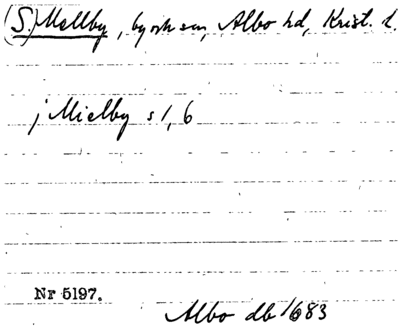 (S.) Mellby, by och sn, Albo hd, Krist. l.
j Mielby s 1, 6
Nr 5197.
Albo db 1683